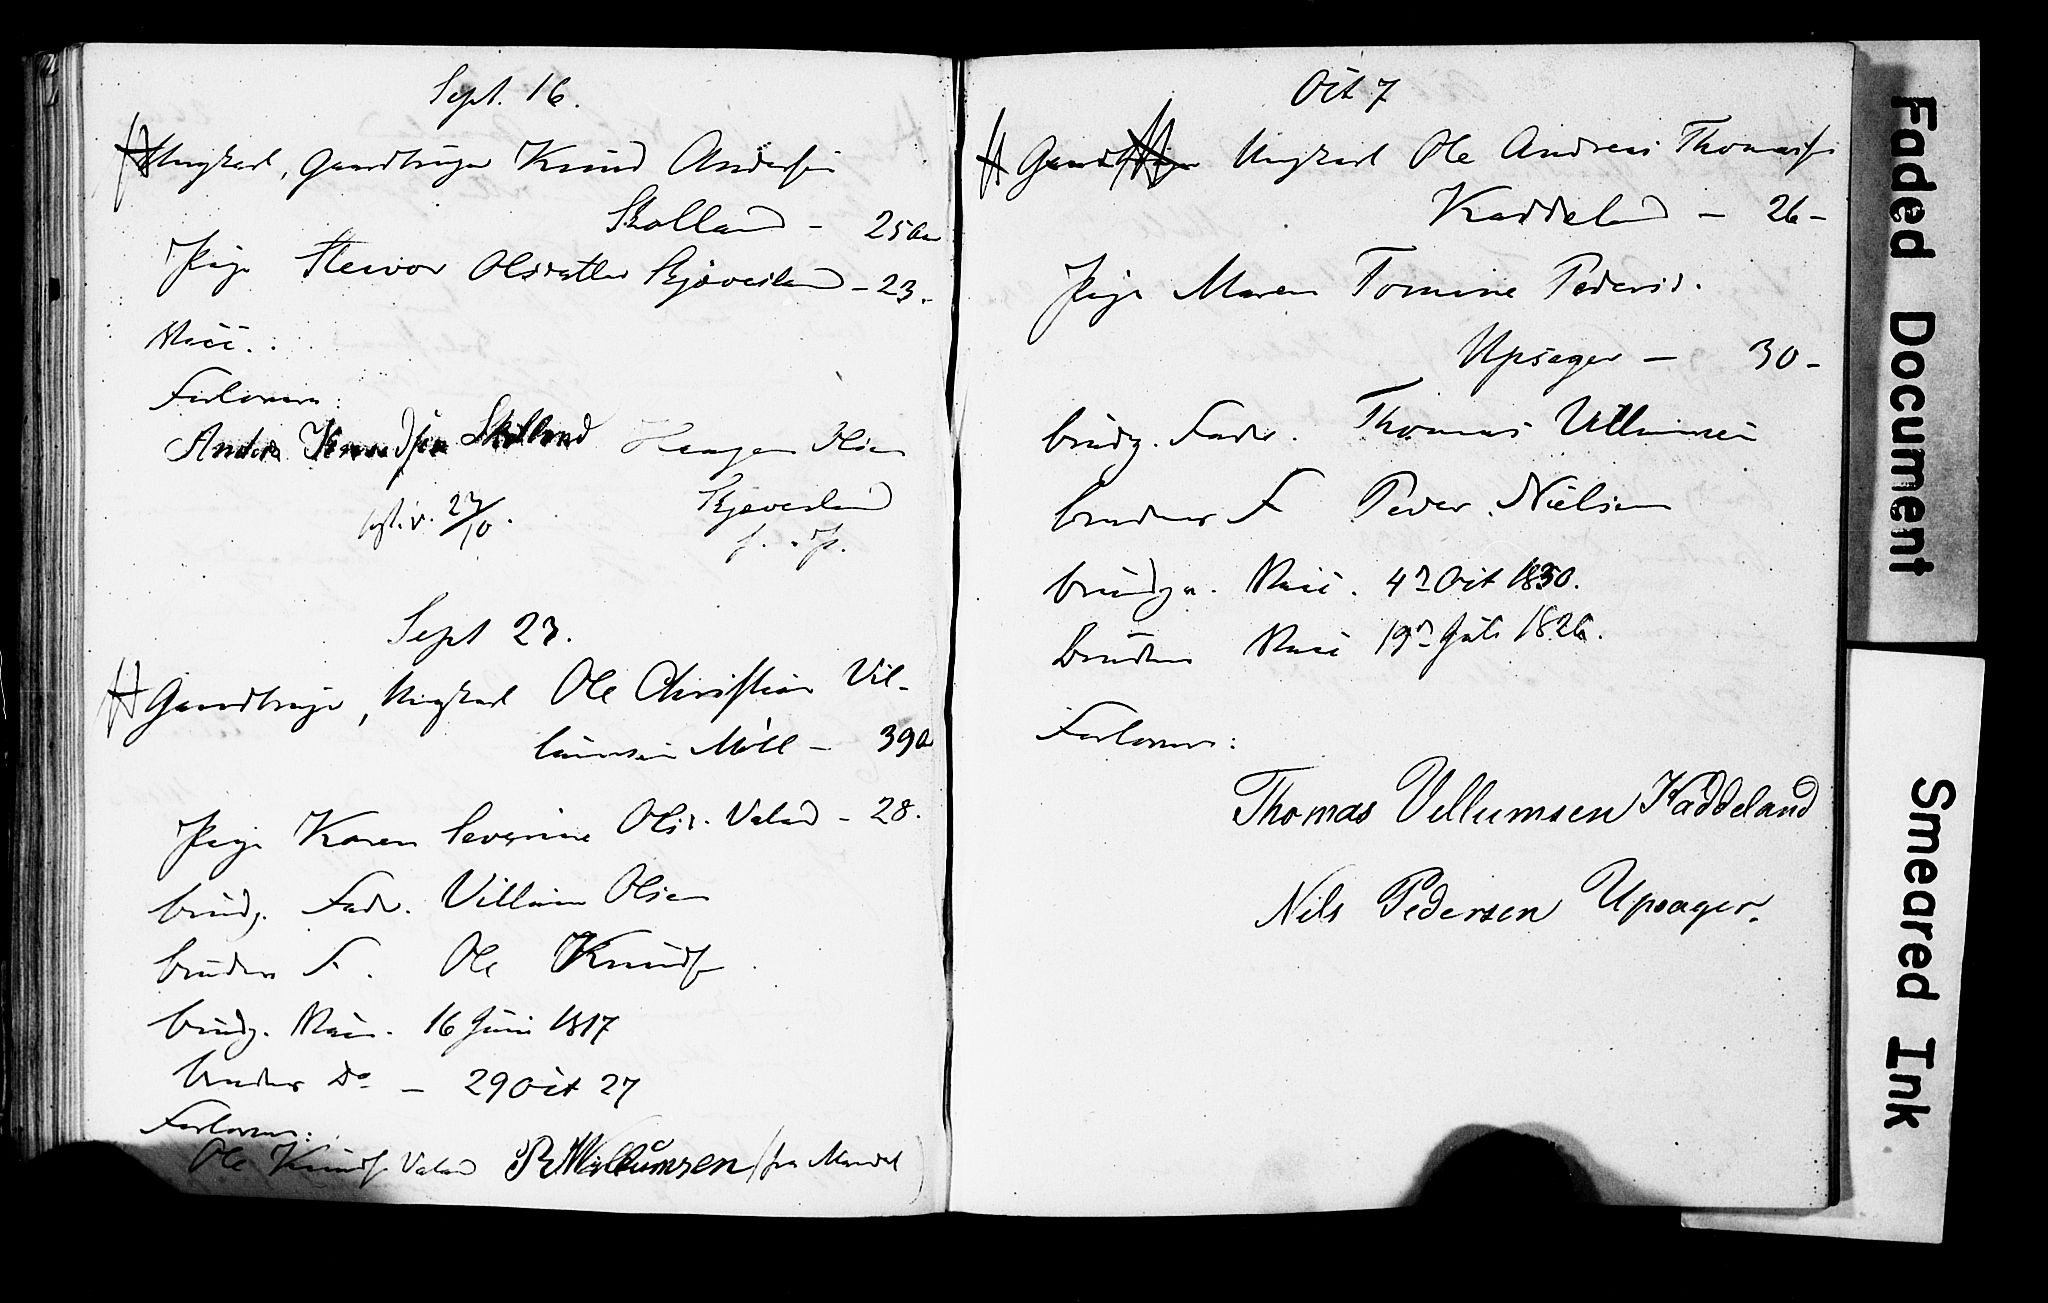 Sept. 16.
Ungkarl, Gaardbruger Knud Andersen
Skolland – 25 Aar
Pige Steivor Olsdatter Kjøvesland – 23.
Vacc. .
Forlovere:
Anders Knudsen Skolland Haagen Olsen
Kjøvesland
23/10.
Sept 23.
Gaardbruger, Ungkarl Ole Christian Vil-
lumsen Møll – 39 A
Pige Karen Severine Olsd. Valand – 28.
brudg. Fader. Villum Olsen
brudens F. Ole Knuds
brudg. Vacc. 16 Juni 1817
brudens Do – 29 Oct 27
Forlovere:
Ole Knuds Valand R Willumsen (fra Mandal)
Oct 7
Ungkarl Ole Andreas Thomass
Kaddeland – 26 –
Pige Maren Tomine Pedersd.
Upsager – 30 –
brudg. Fader. Thomas Villumsen
brudens F Peder Nielsen
brudg. Vacc. 4de Oct 1830.
Brudens Vacc 19de Juli 1826.
Forlovere:
Thomas Villumsen Kaddeland
Nils Pedersen Upsager.
Faded Document
Smeared Ink